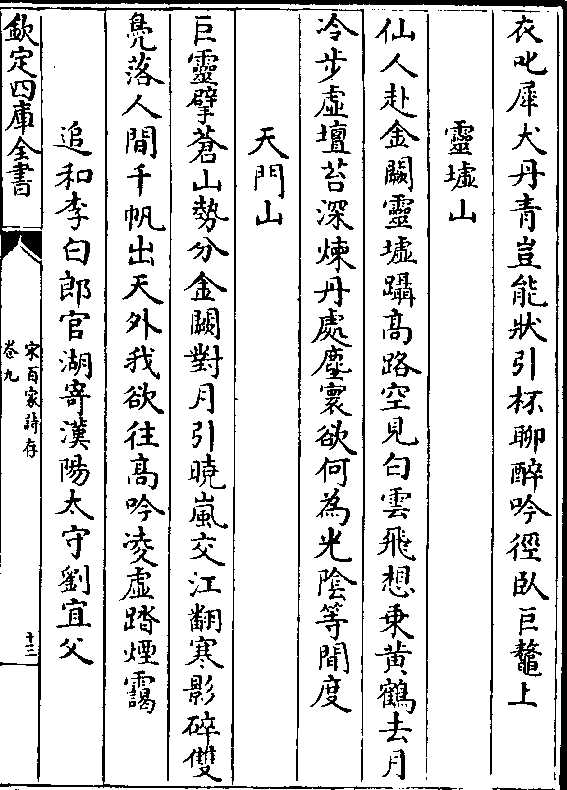 衣叱犀犬丹青豈能狀引杯聊醉吟徑臥巨鼇上
靈墟山
仙人赴金闕靈墟躡高路空見白雲飛想乗黄鶴去月
冷步虚壇苔深煉丹處塵寰欲何為光陰等閒度
天門山
巨靈擘蒼山勢分金闕對月引曉嵐交江翻寒影碎雙
鳧落人間千帆出天外我欲往高吟凌虚踏煙靄
追和李白郎官湖寄漢陽太守劉宜父
欽定四庫全書
宋百家詩存
卷九
十三